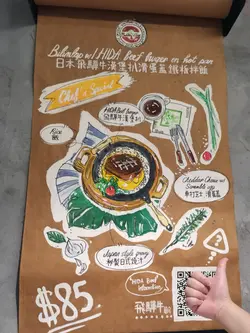 Bibimbap w/ HIDA Beef burger on hot pan
日本飛驒牛漢堡扒滑蛋蓋鐵板拌飯
Chef's Special
HIDA Beef burger
飛驒牛漢堡扒
Rice
飯
Cheddar Cheese w/
Scramble egg
車打芝士滑蛋
Japan style gravy
秘製日式燒汁
HIDA Beef
Information
飛驒牛
$85